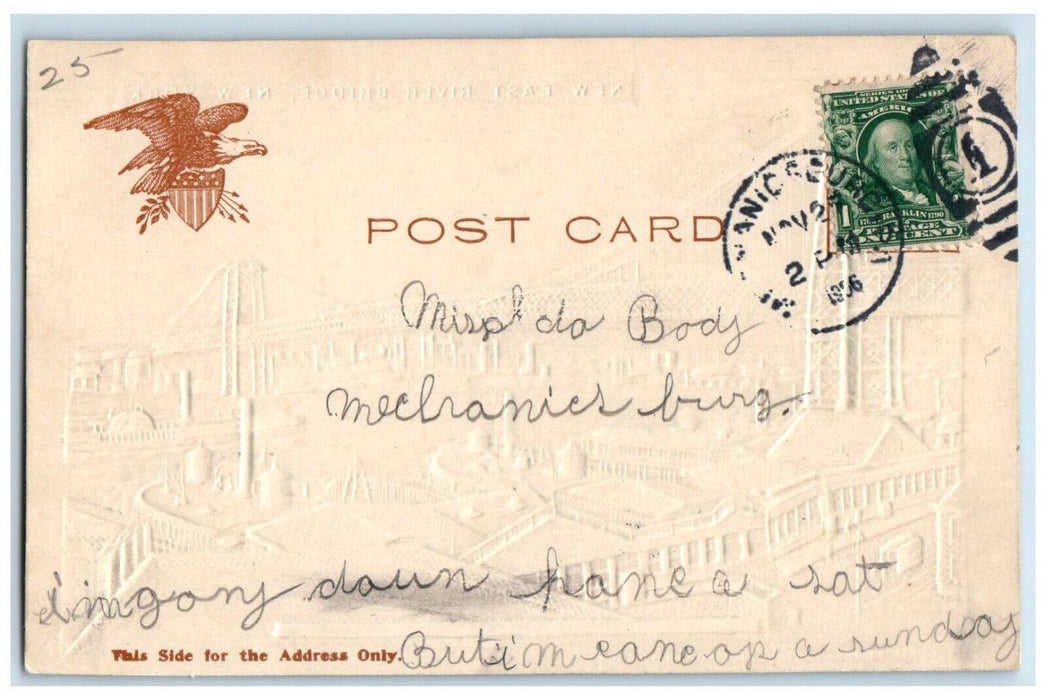 25
NEW EAST RIVER BRIDGE, NEW YORK
SERIES 1902
UNITED STATES OF
AMERICA
1
1706 FRANKLIN 1790
POSTAGE
ONE CENT
1
MECHANICSBURG
NOV 27
2 PM
1906
POST CARD
Miss Ida Body
Mechanics burg.
im gony down hame a sat
But im cane op a sunday
This Side for the Address Only.